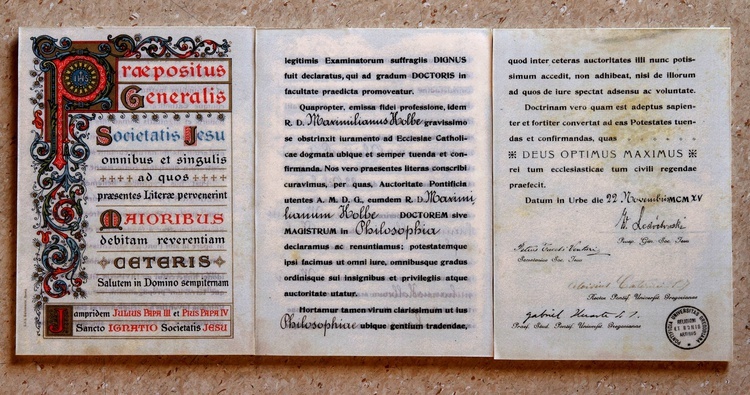 Præpositus
Generalis
Societatis Jesu
omnibus et singulis
ad quos
præsentes Literæ pervenerint
MAIORIBUS
debitam reverentiam
CETERIS
Salutem in Domino sempiternam
Jampridem JULIUS PAPA III et PIUS PAPA IV
Sancto IGNATIO Societatis JESU
legitimis Examinatorum suffragiis DIGNUS
fuit declaratus, qui ad gradum DOCTORIS in
facultate praedicta promoveatur.
Quapropter, emissa fidei professione, idem
R. D. Maximilianus Kolbe gravissimo
se obstrinxit iuramento ad Ecclesiae Catholi-
cae dogmata ubique et semper tuenda et con-
firmanda. Nos vero praesentes literas conscribi
curavimus, per quas, Auctoritate Pontificia
utentes A. M. D. G., eumdem R. D. Maximi
lianum Kolbe DOCTOREM sive
MAGISTRUM in Philosophia
declaramus ac renuntiamus; potestatemque
ipsi facimus ut omni iure, omnibusque gradus
ordinisque sui insignibus et privilegiis atque
auctoritate utatur.
Hortamur tamen virum clarissimum ut ius
Philosophiae ubique gentium tradendae,
quod inter ceteras auctoritates illi nunc potis-
simum accedit, non adhibeat, nisi de illorum
ad quos de iure spectat adsensu ac voluntate.
Doctrinam vero quam est adeptus sapien-
ter et fortiter convertat ad eas Potestates tuen-
das et confirmandas, quas
DEUS OPTIMUS MAXIMUS
rei tum ecclesiasticae tum civili regendae
praefecit.
Datum in Urbe die 22 Novembris MCMXV
Praep. Gen. Soc. Jesu
Secretarius Soc. Jesu
Rector Pontif. Universit. Gregorianae
Gabriel Huarte S. J.
Praef. Stud. Pontif. Universit. Gregorianae